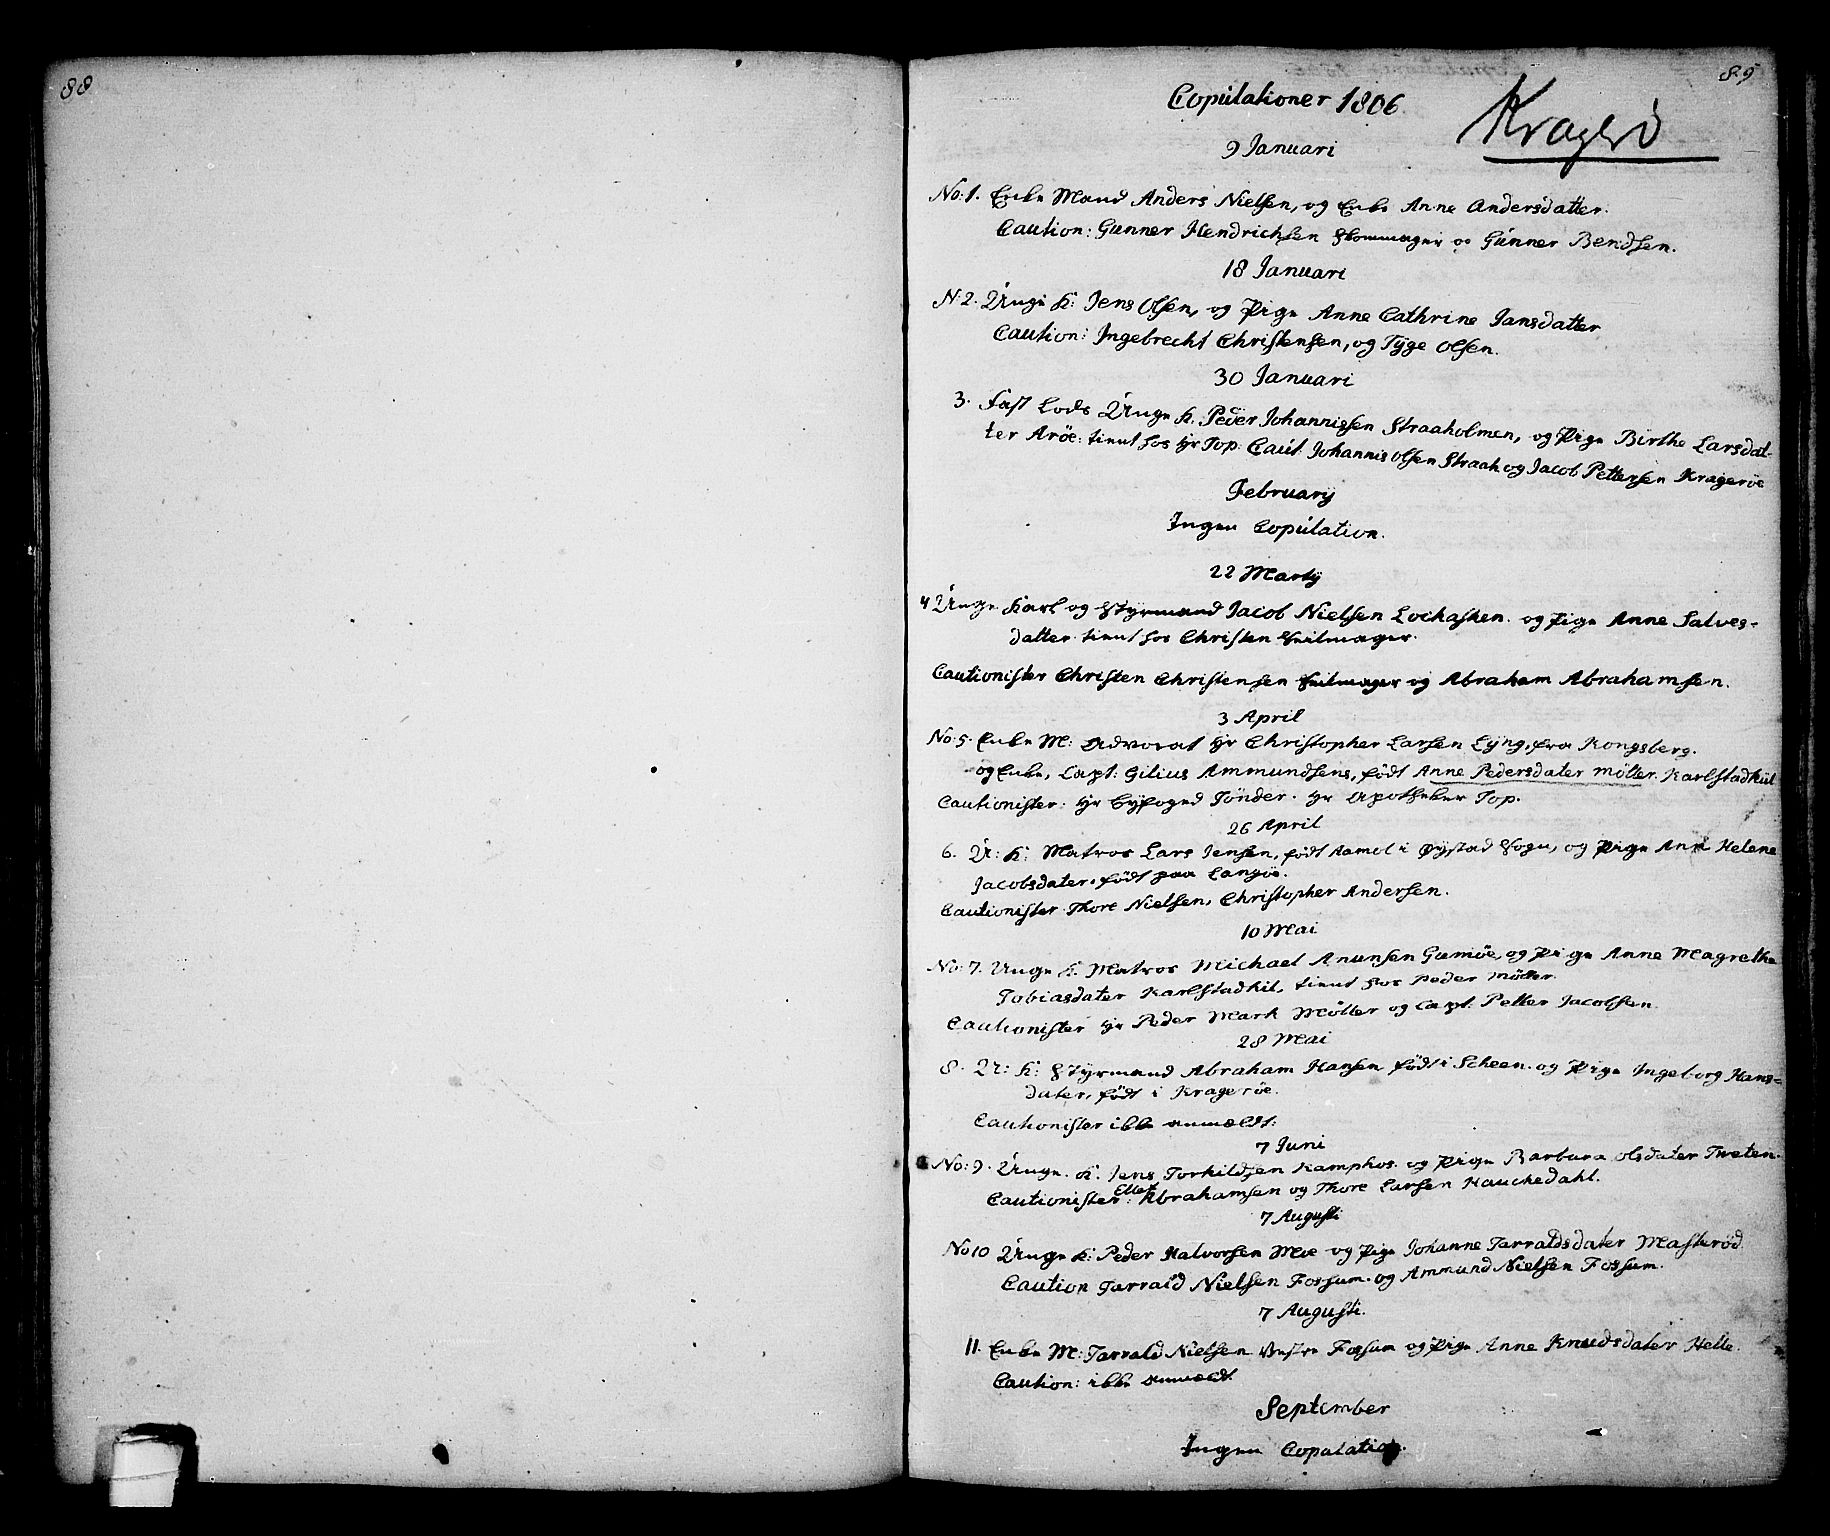 88
89
Copulationer 1806.
Kragerö
9 Januari
No: 1. Enke Mand Anders Nielsen, og Enke Anne Andersdatter.
Caution: Gunner Hendrichsen Skommager og Gunner Bendsen.
18 Januari
N: 2. Unge K: Jens Olsen, og Pige Anne Cathrine Jansdatter
Caution: Ingebrecht Christensen, og Tyge Olsen.
30 Januari
3. Fast Lods Unge K: Peder Johannissen Straaholmen, og Pige Birthe Larsdat-
ter Aröe: tient hos Hr Top: Caut: Johannis Olsen Straah og Jacob Pettersen Kragerøe
February
Ingen Copulation.
22 Marty
4 Unge Karl og Styrmand Jacob Nielsen Lochasken. og Pige Anne Salves-
datter tient hos Christen Seilmager.
Cautionister Christen Christensen Seilmager og Abraham Abrahamsen.
3 April
No: 5. Enke M: Advocat Hr Christopher Larsen Lyng, fra Kongsberg.
og Enke, Capt: Gilius Ammundsens, født Anne Pedersdater Møller. Karlstadkiil
Cautionister: Hr Byfoged Tönder. Hr Apotheker Top.
26 April
6. U: K: Matros Lars Jensen, født i Øystad Sogn, og Pige Ane Helene
Jacobsdater, født paa Langøe.
Cautionister Thore Nielsen, Christopher Andersen.
10 Mai
No: 7. Unge K. Matros Michael Anunsen Gumöe, og Pige Anne Magrethe
Tobiasdater Karlstadkil, tient hos Peder Møller
Cautionister Hr Peder Mark Møller og Capt: Petter Jacobsen.
28 Mai
8. U: K: Styrmand Abraham Hansen født i Scheen. og Pige Ingeborg Hans-
dater, født i Kragerøe.
Cautionister ikke anmældt.
7 Juni
No: 9. Unge. K. Jens Torkildsen Kamphos. og Pige Barbara Olsdater Tveten.
Cautionister: Ellef Abrahamsen og Thore Larsen Hauchedahl.
7 Augusti
No 10 Unge K: Peder Halvorsen Moe og Pige Johanne Tarraldsdater Masteröd.
Caution Tarrald Nielsen Fossum. og Ammund Nielsen Fossum.
7 Augusti.
11. Enke M: Tarrald Nielsen Vestre Fossum og Pige Anne Knudsdater Helle.
Caution: ikke anmældt
September
Ingen Copulation.